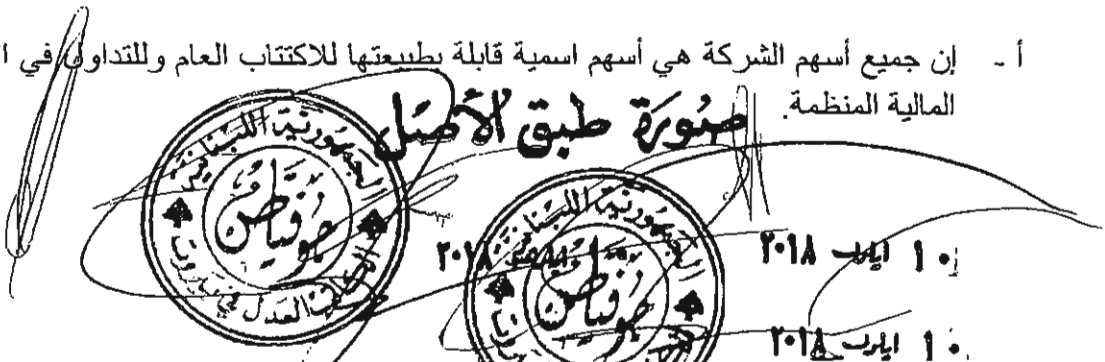 أ - إن جميع أسهم الشركة هي أسهم اسمية قابلة بطبيعتها للاكتتاب العام وللتداول في
المالية المنظمة.
صورة طبق الأصل
الجمهورية اللبنانية
العدل في
الجمهورية اللبنانية
٢٠١٨
١٠ ايلول ٢٠١٨
١٠ ايلول ٢٠١٨